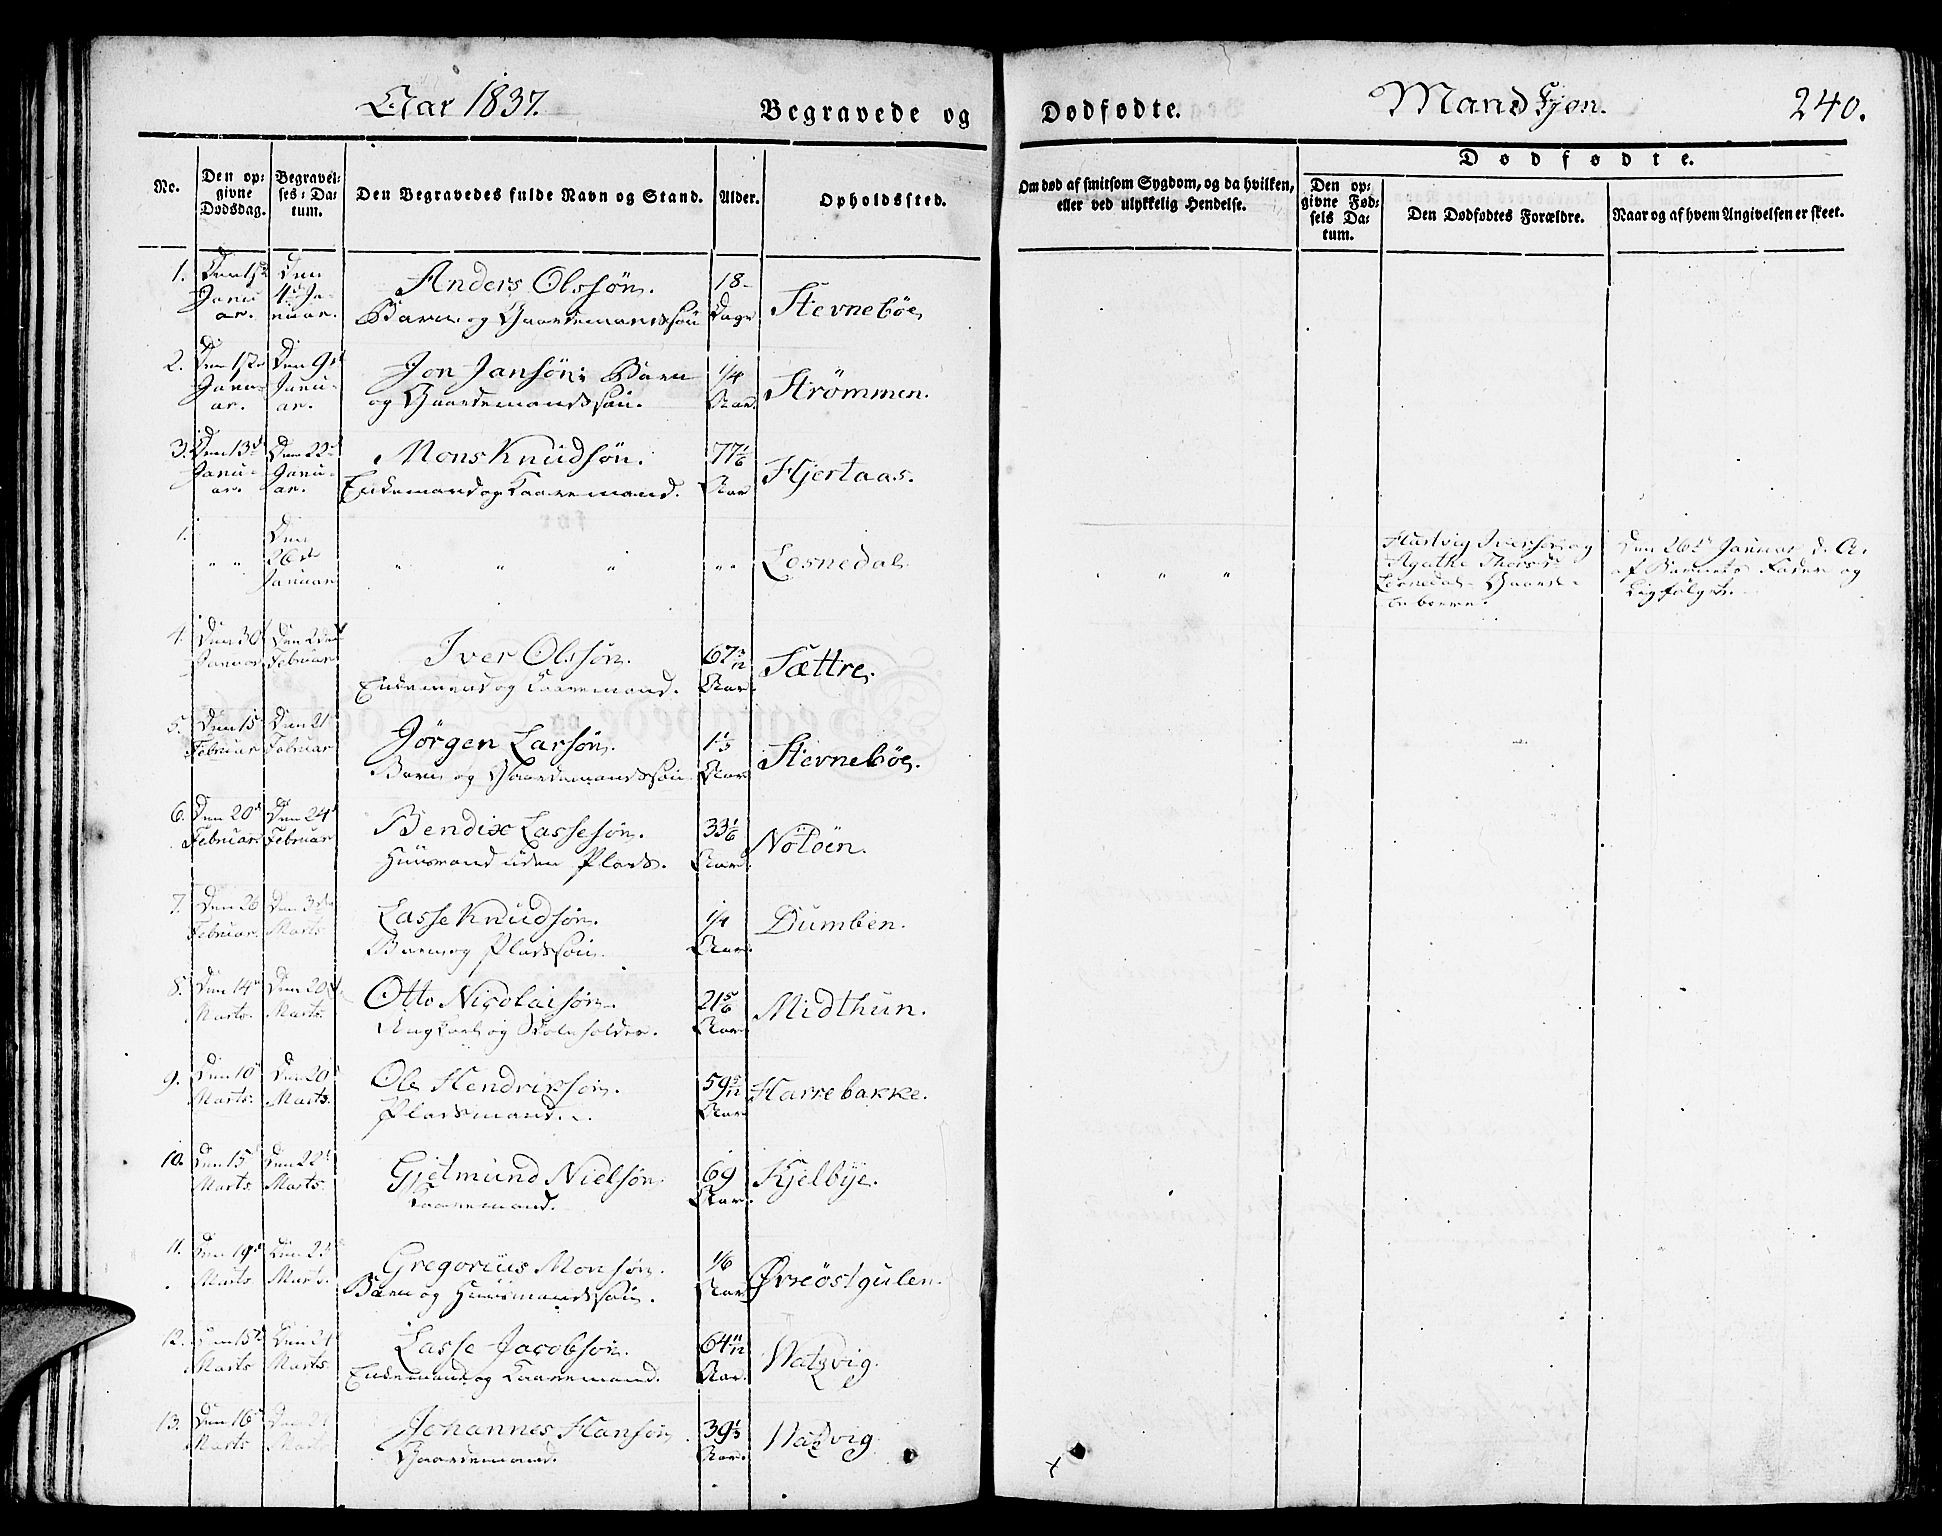 Aar 1837.
Begravede og
Dødfødte.
Mandkjøn.
240.
No.
Den op-
givne
Dødsdag.
Begravel-
ses-Da-
tum.
Den Begravedes fulde Navn og Stand.
Alder.
Opholdssted.
Om død af smitsom Sygdom, og da hvilken,
eller ved ulykkelig Hendelse.
Dødfødte.
Den op-
givne Fød-
sels Da-
tum.
Den Dødfødtes Forældre.
Naar og af hvem Angivelsen er skeet.
1.
Janu
ar.
Den
4d Ja-
nuar.
Anders Olssøn.
Barn og Gaardemandssøn
18-
Dage
Stevnebøe
2.
Den 1
Janu-
ar.
Den 9d
Janu-
ar.
Jon Jansøn: Barn
og Gaardemandssøn.
1/4
Aar.
Strømmen.
3.
Den 13d
Janu-
ar.
Den 22d
Janu-
ar.
Mons Knudsøn.
Enkemand og Kaaremand.
77 1/6
Aar
Hjertaas.
1.
" "
Den
26de
Januar
" " "
" "
Lesnedal
" " "
Hartvig Iversen og
Agathe Thorsd:
Lesnedal - Gaard-
beboere.
Den 26d Januar d. A.
af Barnets Fader og
Ligfølget.
4.
Den 30
Januar
Den 2den
Februar
Iver Olssøn.
Enkemand og Kaaremand.
67 /12
Aar.
Sættre.
5.
Den 15
Februar
Den 21
Februar
Jørgen Larsøn.
Barn og Gaardemandssøn
1 1/3
Aar
Stevnebøe.
6.
Den 20d
Februar
Den 24d
Februar
Bendix Lassesøn.
Huusmand uden Plads.
33 1/6
Aar
Nötöen.
7.
Den 20
Februar.
Den 3de
Marts
Lasse Knudsøn.
Barn og Pladssøn.
1/4
Aar.
Dumben.
8.
Den 14
Marts.
Den 20d
Marts.
Otto Nicolaisøn.
Ungkarl og Skoleholder.
21 5/6
Aar
Midthun.
9.
Den 10d
Marts.
Den 20d
Marts.
Ole Hendriksøn.
Pladsmand.
59 5/12
Aar
Harrebakke.
10.
Den 15
Marts
Den 22
Marts.
Gjetmund Nielsøn.
Kaaremand.
69
Aar.
Kjelbye.
11.
Den 19d
Marts
Den 23
Marts.
Gregorius Monsøn.
Barn og Huusmandssøn.
1/6
Aar
Øvreöstgulen.
12.
Den 15d
Marts
Den 21
Marts.
Lasse Jacobsøn.
Enkemand og Kaaremand.
64 11/12
Aar.
Natvig.
13.
Den 16d
Marts
Den 21
Marts
Johannes Hansøn.
Gaardemand.
39 1/3
Aar.
Natvig